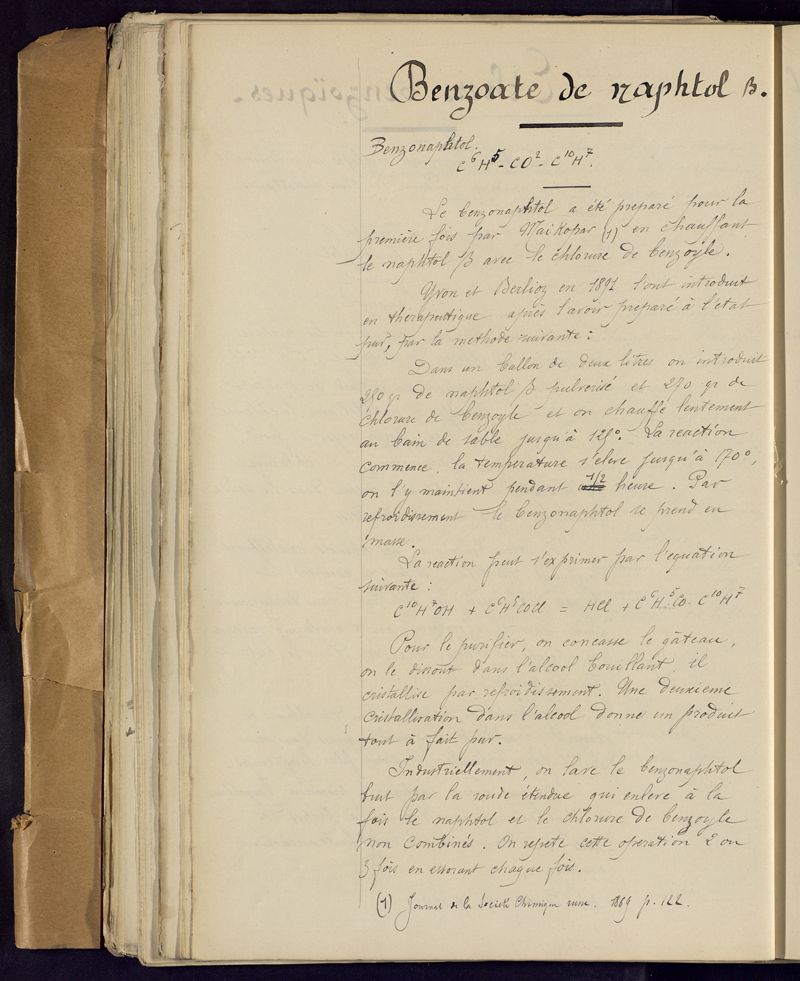 Benzoate de naphtol β.
Benzonaphtol.
C⁶H⁵ - CO² - C¹⁰H⁷.
Le benzonaphtol a été preparé pour la
première fois par Maikopar (1) en chauffant
le naphtol β avec le chlorure de benzoÿle.
Yvon et Berlioz en 1891 l'ont introduit
en therapeutique après l'avoir preparé à l'etat
pur, par la methode suivante :
Dans un ballon de deux litres on introduit
250 gr de naphtol β pulverisé et 270 gr de
chlorure de benzoyle et on chauffe lentement
au bain de sable jusqu'à 125°. La reaction
commence, la temperature s'eleve jusqu'à 170°,
on l'y maintient pendant 1/2 heure. Par
refroidissement le benzonaphtol se prend en
masse.
La reaction peut s'exprimer par l'equation
suivante :
C¹⁰H⁷OH + C⁶H⁵COCl = HCl + C⁶H⁵CO - C¹⁰H⁷
Pour le purifier, on concasse le gâteau,
on le dissout dans l'alcool bouillant, il
cristallise par refroidissement. Une deuxieme
cristallisation dans l'alcool donne un produit
tout à fait pur.
Industriellement, on lave le benzonaphtol
brut par la soude étendue qui enleve à la
fois le naphtol et le chlorure de benzoyle
non combinés. On repete cette operation 2 ou
3 fois en essorant chaque fois.
(1) Journal de la Societé Chimique russe. 1869 p. 122.